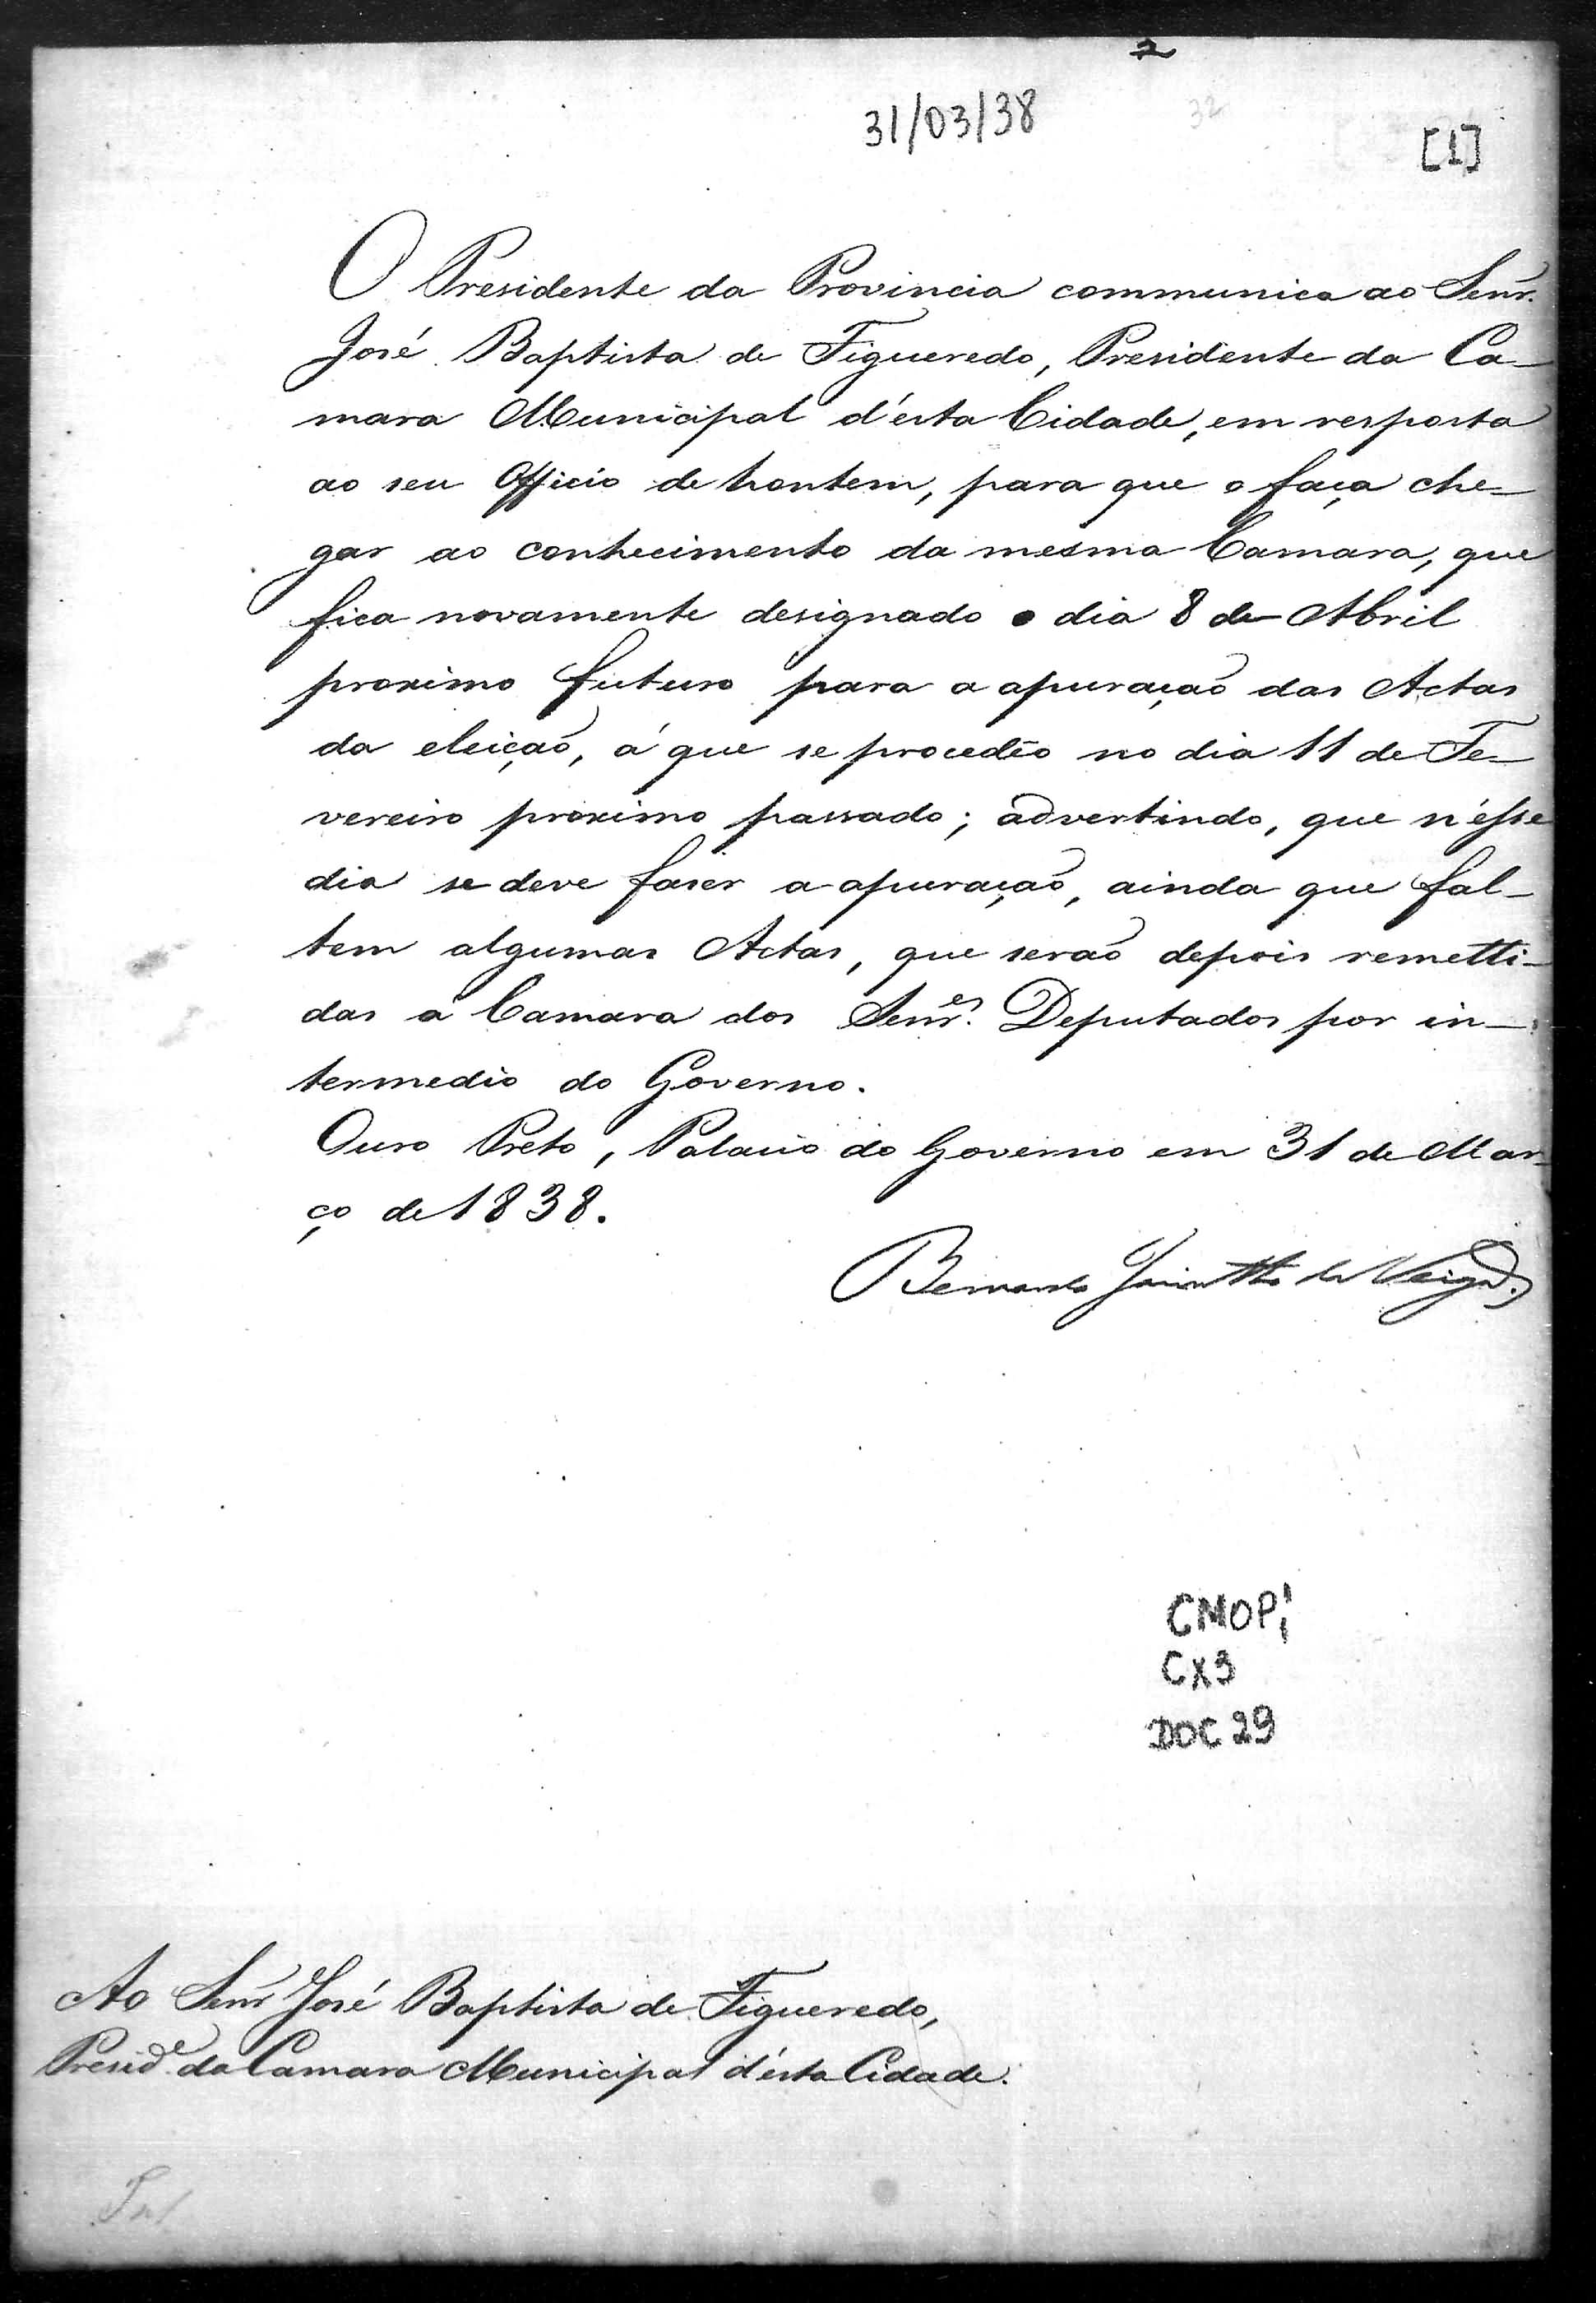 2
31/03/38
32
[1]
O Presidente da Provincia communica ao Senr.
José Baptista de Figueredo, Presidente da Ca-
mara Municipal d'ésta Cidade, em resposta
ao seu Officio de hontem, para que o faça che-
gar ao conhecimento da mesma Camara, que
fica novamente designado o dia 8 de Abril
proximo futuro para a apuração das Actas
da eleição, á que se procedêo no dia 11 de Fe-
vereiro proximo passado; advertindo, que n'ésse
dia se deve faser a apuração, ainda que fal-
tem algumas Actas, que serão depois remetti-
das á Camara dos Senr.es Deputados por in-
termedio do Governo.
Ouro Preto, Palacio do Governo em 31 de Mar-
ço de 1838.
Bernardo Jacintho da Veiga.
CMOP
CX3
DOC 29
Ao Senr José Baptista de Figueredo,
Presid.e da Camara Municipal d'ésta Cidade.